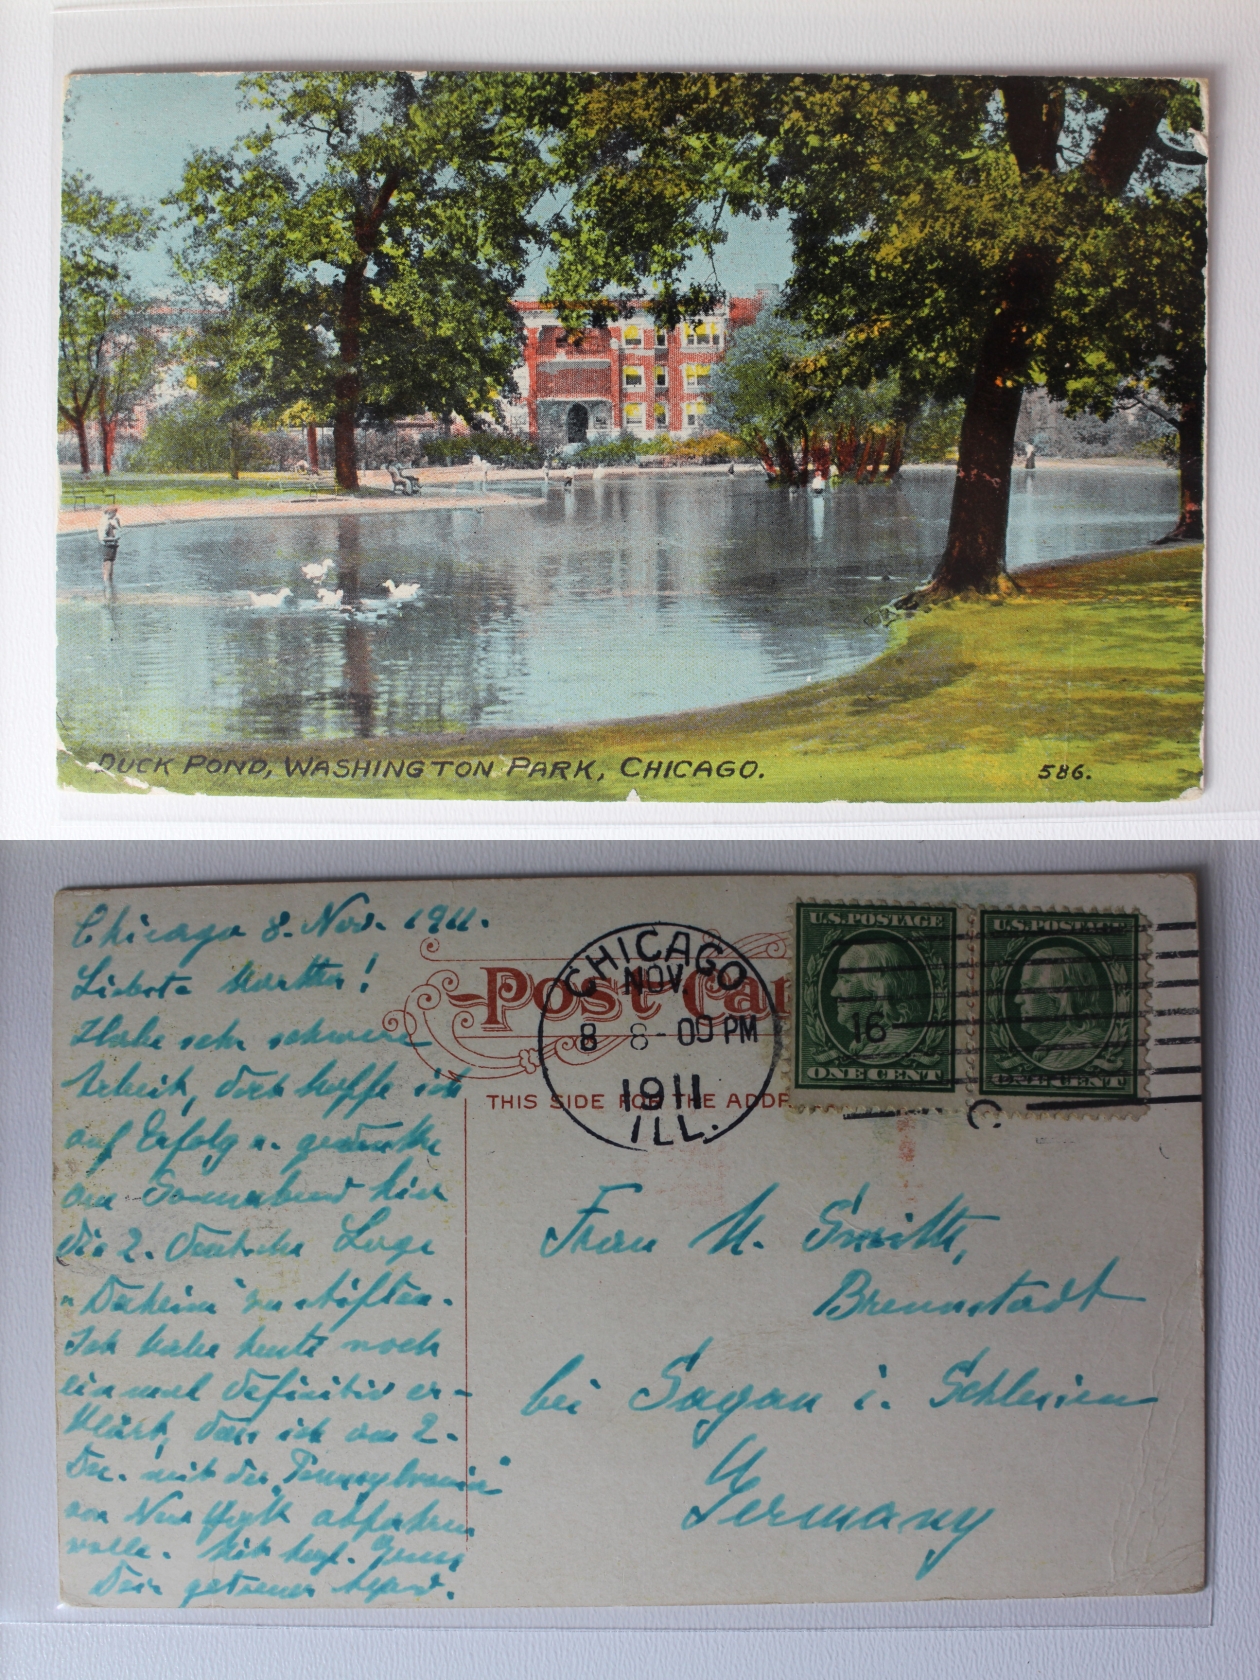 DUCK POND, WASHINGTON PARK, CHICAGO.
586.
Chicago 8. Nov. 1911.
Liebste Martha!
Habe sehr schwere
Arbeit, doch hoffe ich
auf Erfolg u. gedenke
am Sonnabend hier
die 2. Deutsche Loge
"Daheim" zu stiften.
Ich habe heute noch
einmal definitiv er-
klärt, dass ich am 2.
Dec. mit der "Pennsylvania"
von New York abfahren
wolle. Mit herzl. Gruss
Dein getreuer
Post Car
THIS SIDE FOR THE ADDR
CHICAGO
NOV
8 8-00 PM
1911
ILL.
U.S. POSTAGE
ONE CENT
U.S. POSTAGE
ONE CENT
16
C
Frau M. Smith,
Brennstadt
bei Sagan i. Schlesien
Germany